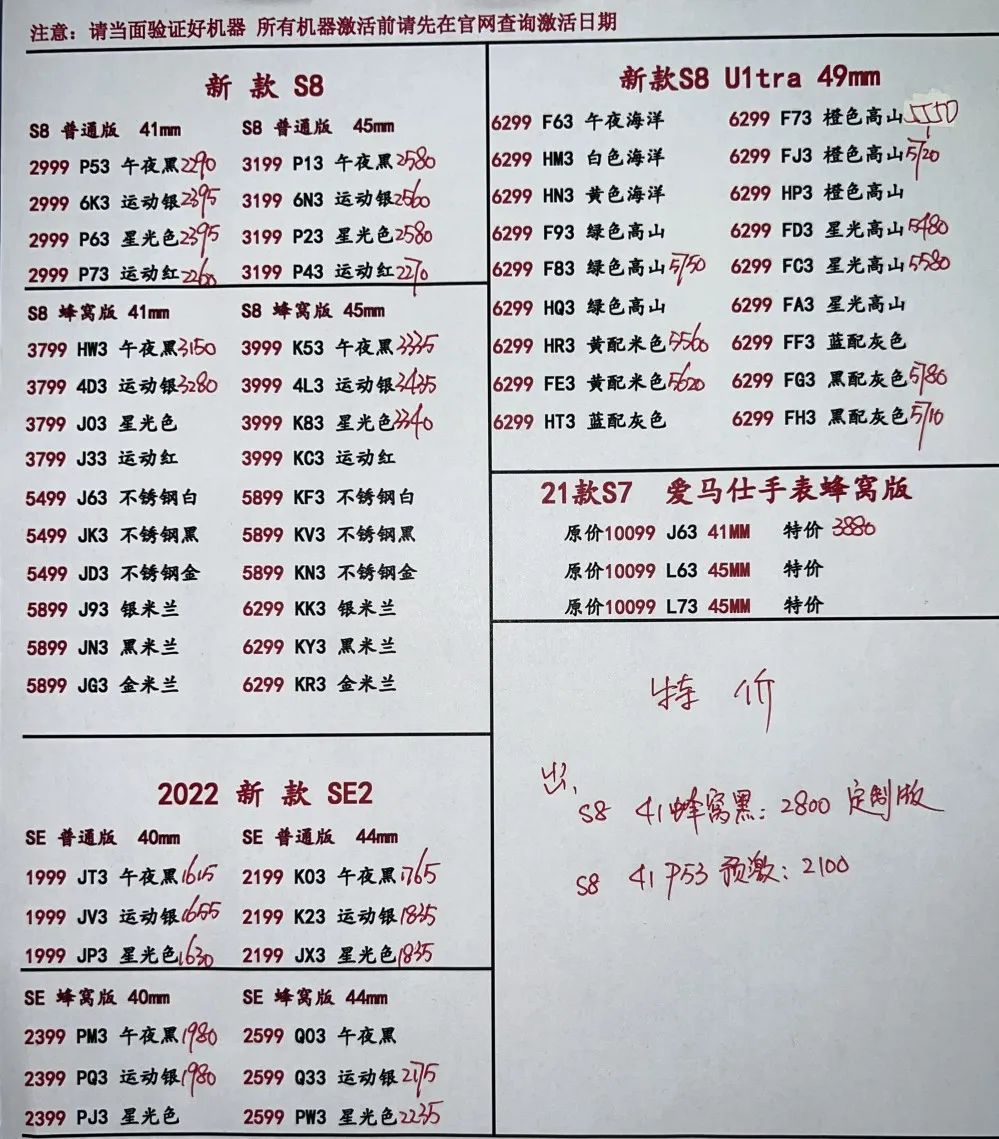 注意：请当面验证好机器 所有机器激活前请先在官网查询激活日期
新 款 S8
S8 普通版 41mm
2999 P53 午夜黑 2290
2999 6K3 运动银 2395
2999 P63 星光色 2395
2999 P73 运动红 2260
S8 普通版 45mm
3199 P13 午夜黑 2580
3199 6N3 运动银 2560
3199 P23 星光色 2580
3199 P43 运动红 2270
S8 蜂窝版 41mm
3799 HW3 午夜黑 3150
3799 4D3 运动银 3280
3799 J03 星光色
3799 J33 运动红
5499 J63 不锈钢白
5499 JK3 不锈钢黑
5499 JD3 不锈钢金
5899 J93 银米兰
5899 JN3 黑米兰
5899 JG3 金米兰
S8 蜂窝版 45mm
3999 K53 午夜黑 3335
3999 4L3 运动银 3435
3999 K83 星光色 3340
3999 KC3 运动红
5899 KF3 不锈钢白
5899 KV3 不锈钢黑
5899 KN3 不锈钢金
6299 KK3 银米兰
6299 KY3 黑米兰
6299 KR3 金米兰
2022 新 款 SE2
SE 普通版 40mm
1999 JT3 午夜黑 1615
1999 JV3 运动银 1655
1999 JP3 星光色 1630
SE 普通版 44mm
2199 K03 午夜黑 1765
2199 K23 运动银 1835
2199 JX3 星光色 1835
SE 蜂窝版 40mm
2399 PM3 午夜黑 1980
2399 PQ3 运动银 1980
2399 PJ3 星光色
SE 蜂窝版 44mm
2599 Q03 午夜黑
2599 Q33 运动银 2175
2599 PW3 星光色 2235
新款S8 U1tra 49mm
6299 F63 午夜海洋
6299 HM3 白色海洋
6299 HN3 黄色海洋
6299 F93 绿色高山
6299 F83 绿色高山 5750
6299 HQ3 绿色高山
6299 HR3 黄配米色 5560
6299 FE3 黄配米色 5620
6299 HT3 蓝配灰色
6299 F73 橙色高山 5550
6299 FJ3 橙色高山 5720
6299 HP3 橙色高山
6299 FD3 星光高山 5480
6299 FC3 星光高山 5580
6299 FA3 星光高山
6299 FF3 蓝配灰色
6299 FG3 黑配灰色 5780
6299 FH3 黑配灰色 5710
21款S7 爱马仕手表蜂窝版
原价10099 J63 41MM 特价 3880
原价10099 L63 45MM 特价
原价10099 L73 45MM 特价
特 价
出.
S8 41蜂窝黑：2800 定制版
S8 41 P53 预激：2100